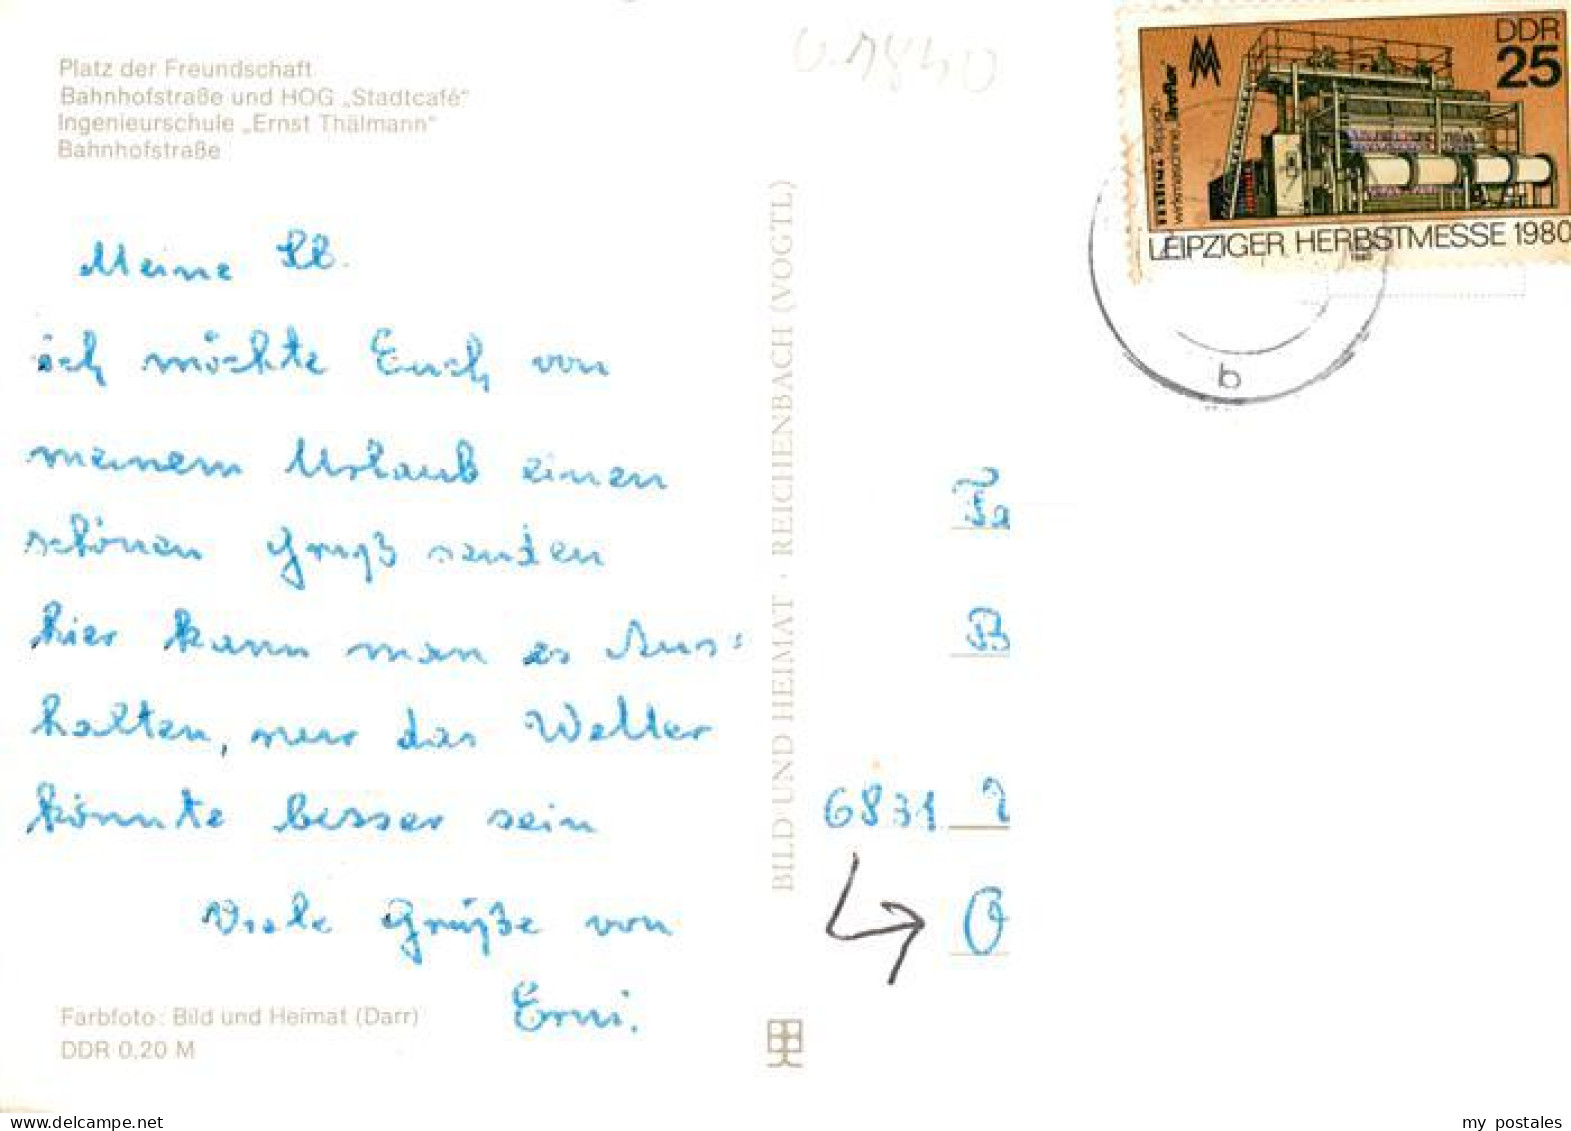 Platz der Freundschaft
Bahnhofstraße und HOG „Stadtcafé“
Ingenieurschule „Ernst Thälmann“
Bahnhofstraße
DDR
25
malimo Teppich-
wirkmaschine „Liropol“
LEIPZIGER HERBSTMESSE 1980
b
Meine Lb.
ich möchte Euch von
meinem Urlaub einen
schönen Gruß senden
hier kann man es Aus=
halten, nur das Wetter
könnte besser sein
Viele Grüße von
Erni.
Farbfoto: Bild und Heimat (Darr)
DDR 0,20 M
BILD UND HEIMAT · REICHENBACH (VOGTL)
Fa
B
6831
O
my postales